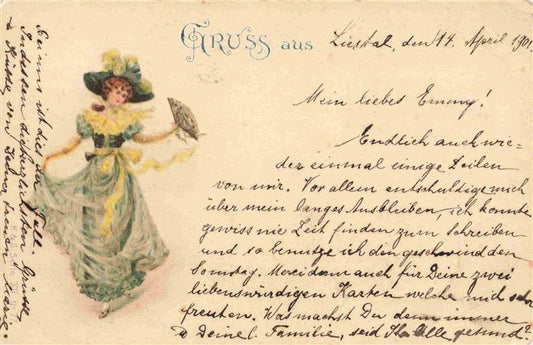 GRUSS aus Liestal, den 14. April 1901
Mein liebes Emmy!
Endlich auch wie=
der einmal einige Zeilen
von mir. Vor allem entschuldige mich
über mein langes Ausbleiben, ich konnte
gewiss nie Zeit finden zum Schreiben
und so benutze ich den geschwind den
Sonntag. Merci dann auch für Deine zwei
liebenswürdigen Karten welche mich sehr
freuten. Was machst Du denn immer
Deine l. Familie, seid Ihr Alle gesund?
Bei uns ist dies der Fall.
Indessen die herzlichsten Grüsse
Küsse von Deiner treuen